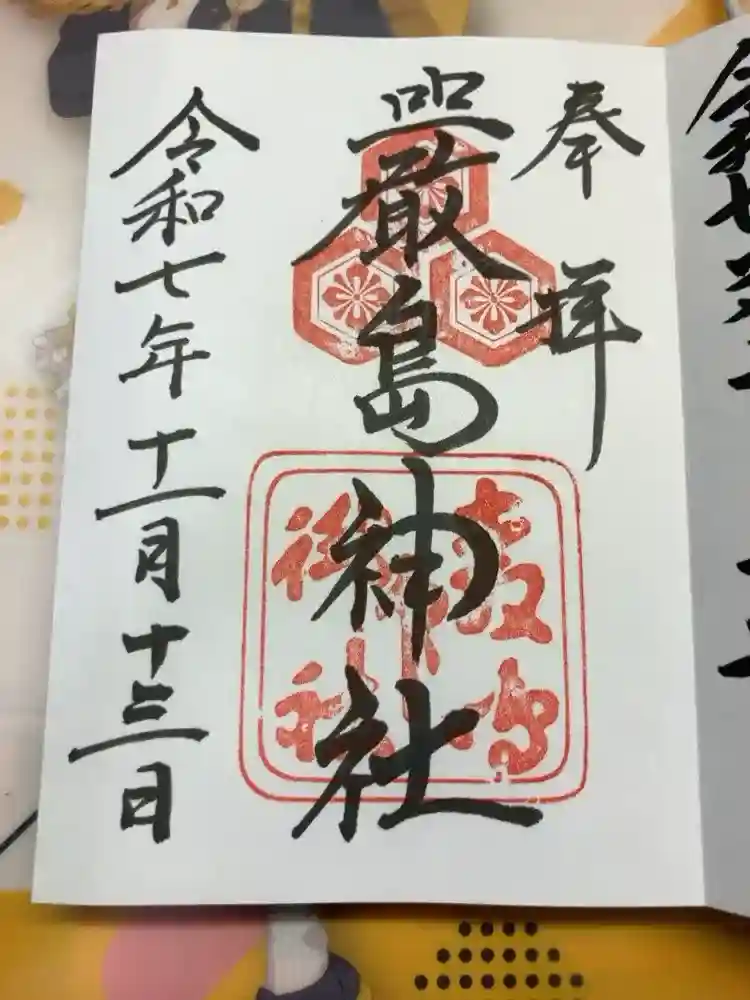 奉拝
嚴島神社
令和七年十一月十三日